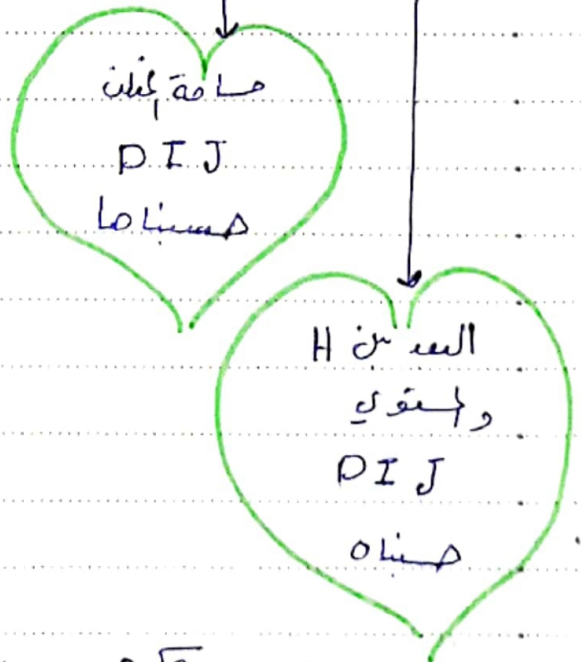 مساحة المثلث
DIJ
حسبناها
البعد بين H
والمستوي
DIJ
حسبناه